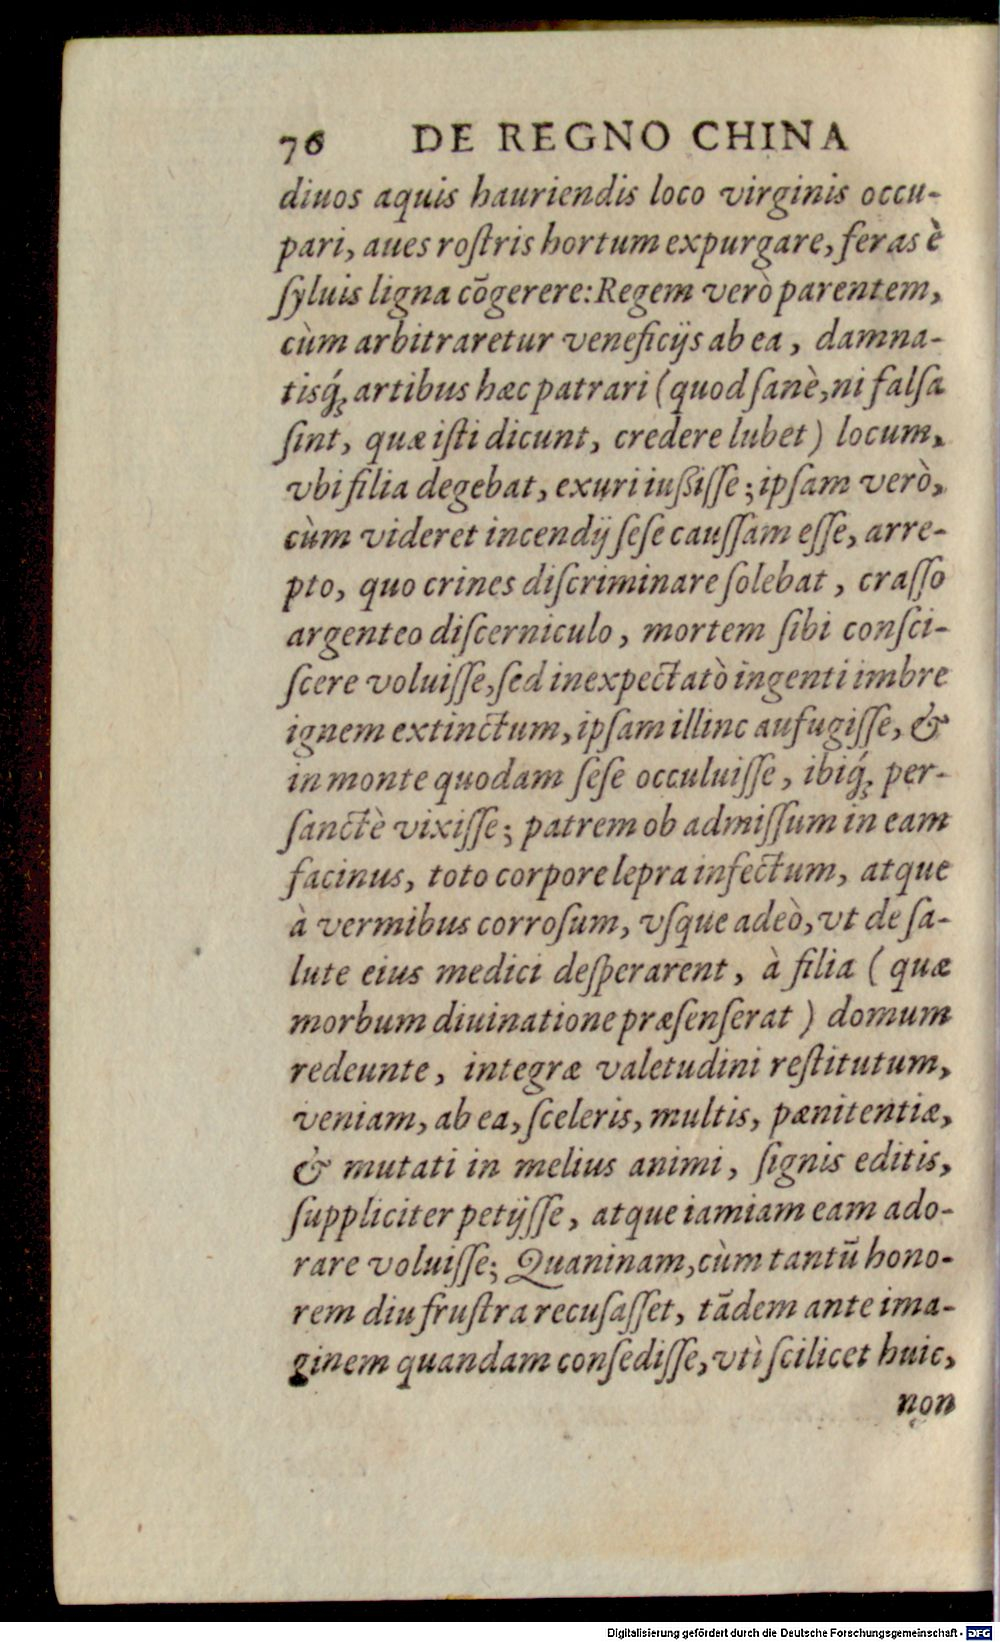 76 DE REGNO CHINA
diuos aquis hauriendis loco virginis occu-
pari, aues roſtris hortum expurgare, feras è
ſyluis ligna cōgerere: Regem verò parentem,
cùm arbitraretur veneficijs ab ea, damna-
tisq́₃ artibus hæc patrari (quod ſanè, ni falſa
ſint, quæ iſti dicunt, credere lubet) locum,
vbi filia degebat, exuri iuſsiſſe; ipſam verò,
cùm videret incendij ſeſe cauſſam eſſe, arre-
pto, quo crines diſcriminare ſolebat, craſſo
argenteo diſcerniculo, mortem ſibi conſci-
ſcere voluiſſe, ſed inexpectatò ingenti imbre
ignem extinctum, ipſam illinc aufugiſſe, &
in monte quodam ſeſe occuluiſſe, ibiq́₃ per-
ſanctè vixiſſe; patrem ob admiſſum in eam
facinus, toto corpore lepra infectum, atque
à vermibus corroſum, vſque adeò, vt de ſa-
lute eius medici deſperarent, à filia (quæ
morbum diuinatione præſenſerat) domum
redeunte, integræ valetudini reſtitutum,
veniam, ab ea, ſceleris, multis, pænitentiæ,
& mutati in melius animi, ſignis editis,
ſuppliciter petijſſe, atque iamiam eam ado-
rare voluiſſe; Quaninam, cùm tantū hono-
rem diu fruſtra recuſaſſet, tādem ante ima-
ginem quandam conſediſſe, vtì ſcilicet huic,
non
Digitalisierung gefördert durch die Deutsche Forschungsgemeinschaft - DFG